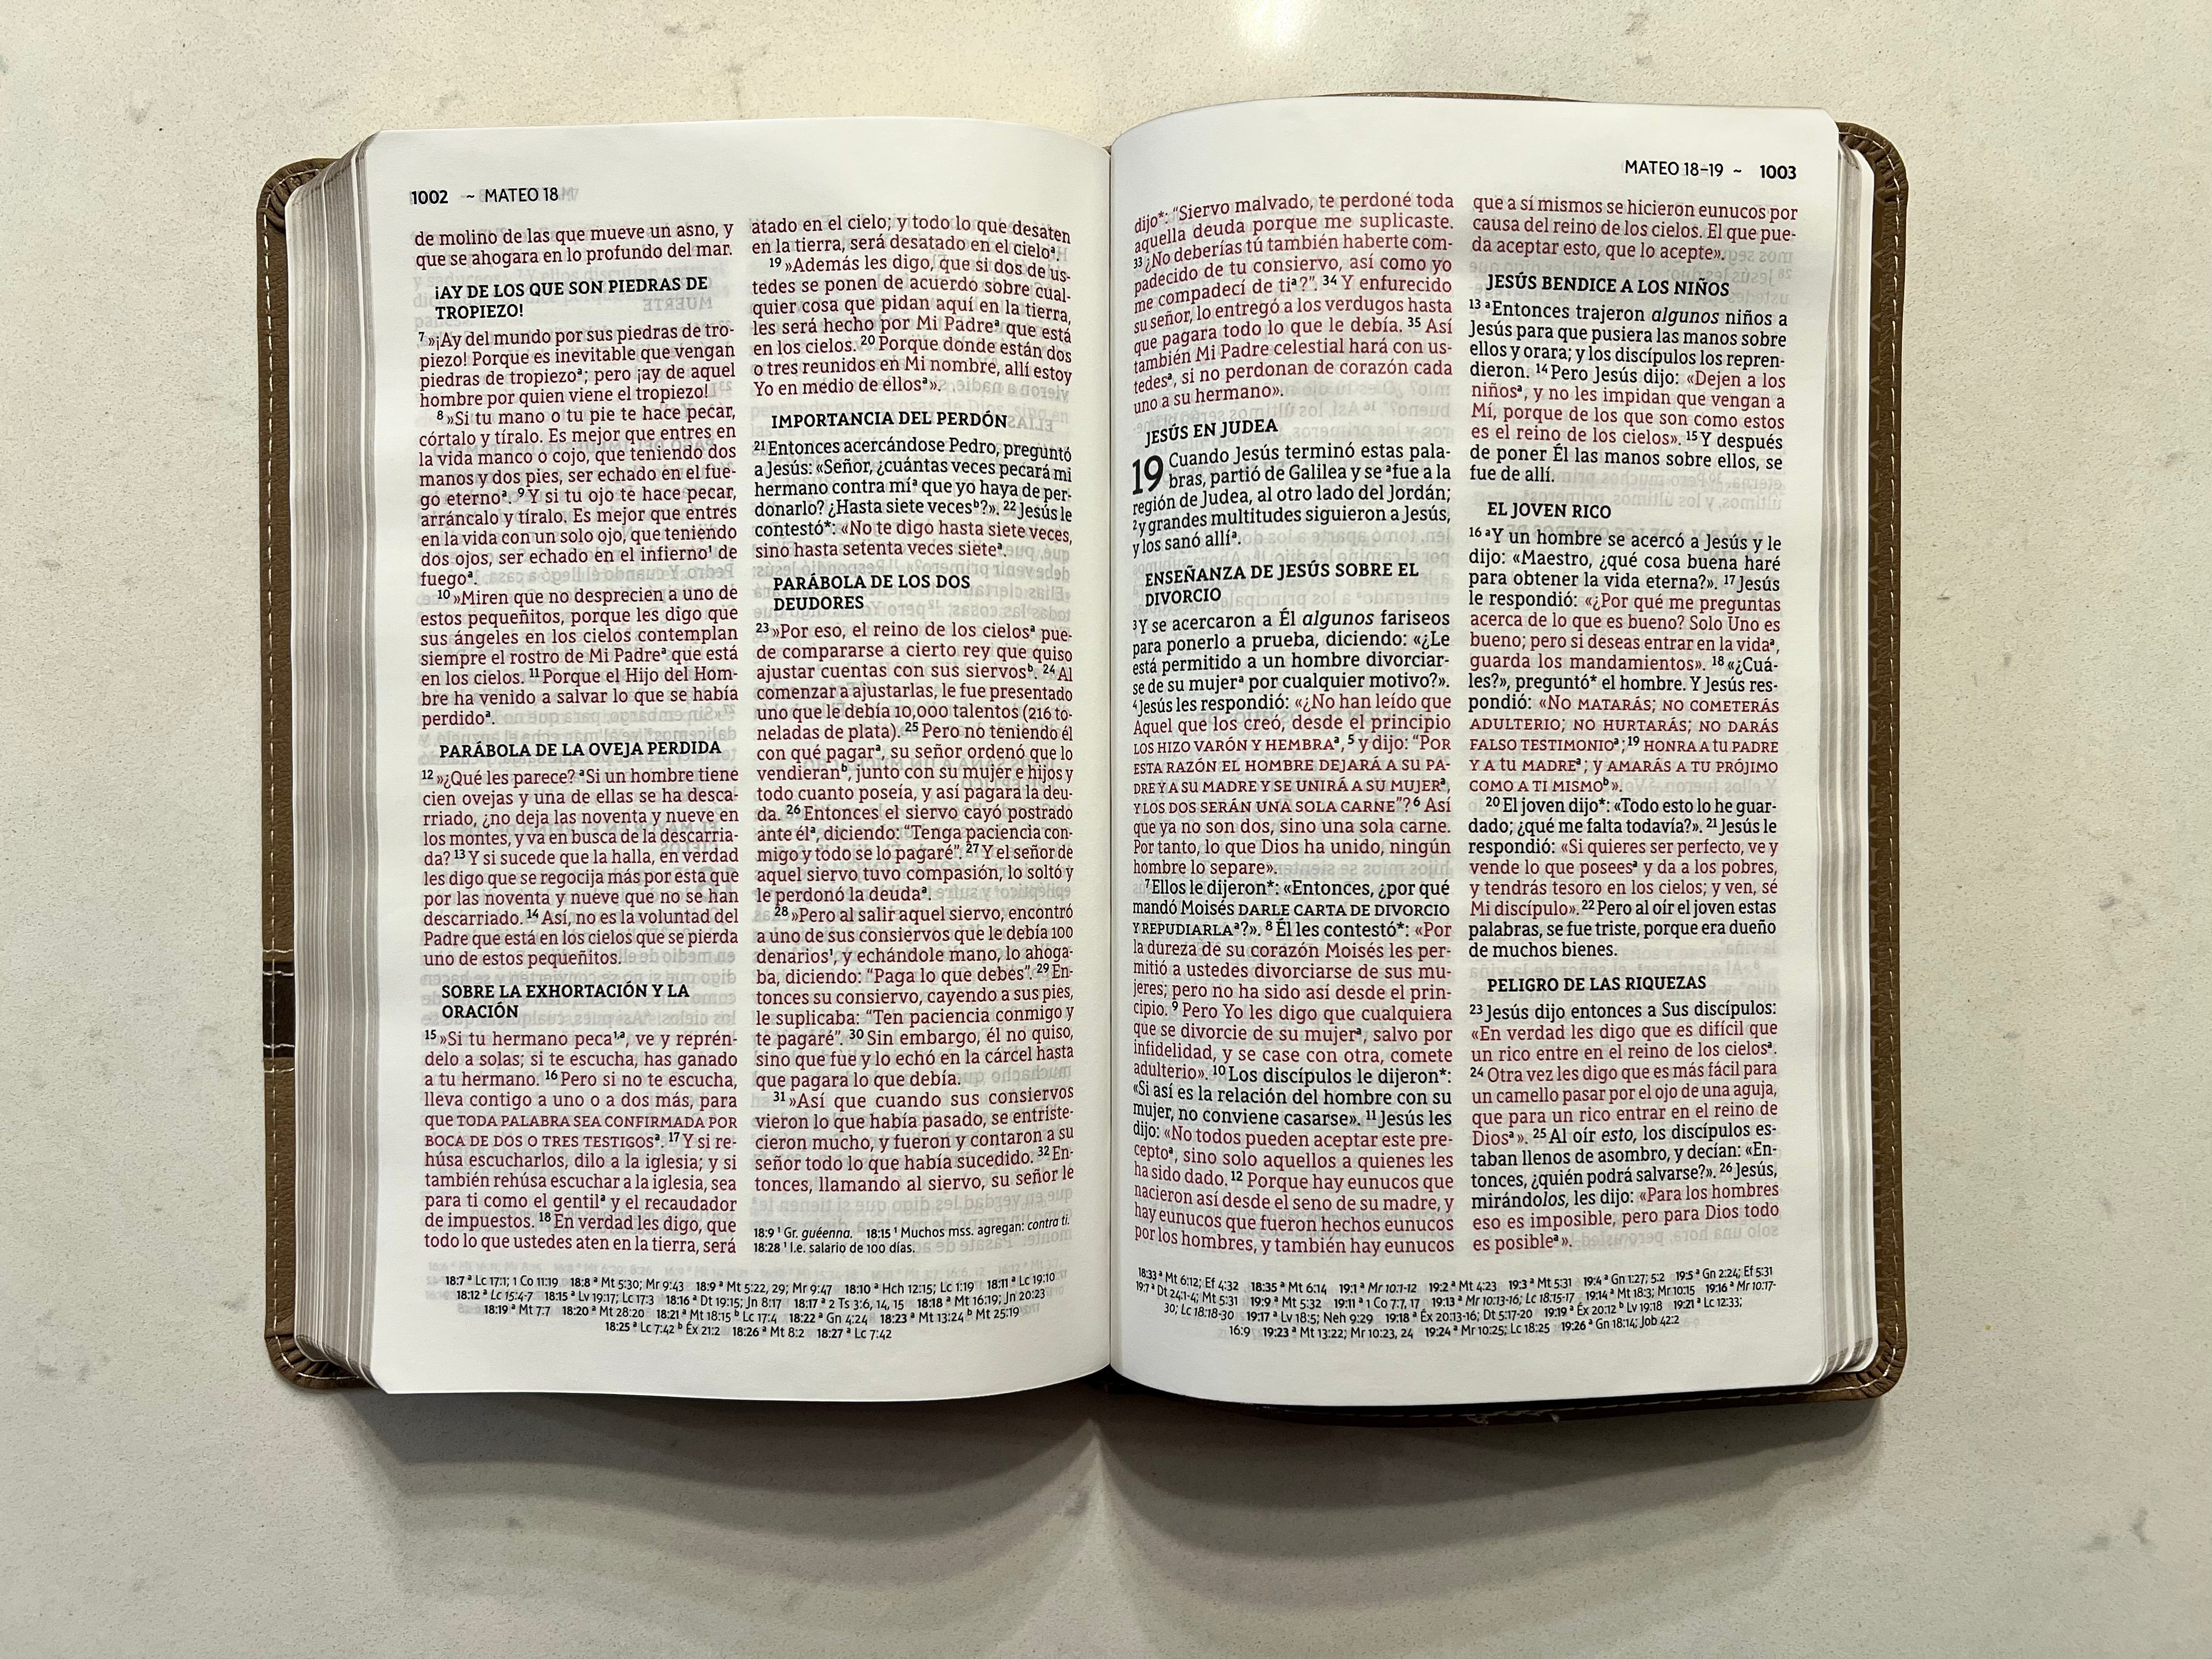 1002 ~ MATEO 18
de molino de las que mueve un asno, y
que se ahogara en lo profundo del mar.
¡AY DE LOS QUE SON PIEDRAS DE
TROPIEZO!
7 »¡Ay del mundo por sus piedras de tro-
piezo! Porque es inevitable que vengan
piedras de tropiezoª; pero ¡ay de aquel
hombre por quien viene el tropiezo!
8 »Si tu mano o tu pie te hace pecar,
córtalo y tíralo. Es mejor que entres en
la vida manco o cojo, que teniendo dos
manos y dos pies, ser echado en el fue-
go eternoª. 9 Y si tu ojo te hace pecar,
arráncalo y tíralo. Es mejor que entres
en la vida con un solo ojo, que teniendo
dos ojos, ser echado en el infierno¹ de
fuegoª.
10 »Miren que no desprecien a uno de
estos pequeñitos, porque les digo que
sus ángeles en los cielos contemplan
siempre el rostro de Mi Padreª que está
en los cielos. 11 Porque el Hijo del Hom-
bre ha venido a salvar lo que se había
perdidoª.
PARÁBOLA DE LA OVEJA PERDIDA
12 »¿Qué les parece? ªSi un hombre tiene
cien ovejas y una de ellas se ha desca-
rriado, ¿no deja las noventa y nueve en
los montes, y va en busca de la descarria-
da? 13 Y si sucede que la halla, en verdad
les digo que se regocija más por esta que
por las noventa y nueve que no se han
descarriado. 14 Así, no es la voluntad del
Padre que está en los cielos que se pierda
uno de estos pequeñitos.
SOBRE LA EXHORTACIÓN Y LA
ORACIÓN
15 »Si tu hermano peca¹,ª, ve y reprén-
delo a solas; si te escucha, has ganado
a tu hermano. 16 Pero si no te escucha,
lleva contigo a uno o a dos más, para
que TODA PALABRA SEA CONFIRMADA POR
BOCA DE DOS O TRES TESTIGOSª. 17 Y si re-
húsa escucharlos, dilo a la iglesia; y si
también rehúsa escuchar a la iglesia, sea
para ti como el gentilª y el recaudador
de impuestos. 18 En verdad les digo, que
todo lo que ustedes aten en la tierra, será
atado en el cielo; y todo lo que desaten
en la tierra, será desatado en el cieloª.
19 »Además les digo, que si dos de us-
tedes se ponen de acuerdo sobre cual-
quier cosa que pidan aquí en la tierra,
les será hecho por Mi Padreª que está
en los cielos. 20 Porque donde están dos
o tres reunidos en Mi nombre, allí estoy
Yo en medio de ellosª».
IMPORTANCIA DEL PERDÓN
21 Entonces acercándose Pedro, preguntó
a Jesús: «Señor, ¿cuántas veces pecará mi
hermano contra míª que yo haya de per-
donarlo? ¿Hasta siete vecesᵇ?». 22 Jesús le
contestó*: «No te digo hasta siete veces,
sino hasta setenta veces sieteª.
PARÁBOLA DE LOS DOS
DEUDORES
23 »Por eso, el reino de los cielosª pue-
de compararse a cierto rey que quiso
ajustar cuentas con sus siervosᵇ. 24 Al
comenzar a ajustarlas, le fue presentado
uno que le debía 10,000 talentos (216 to-
neladas de plata). 25 Pero no teniendo él
con qué pagarª, su señor ordenó que lo
vendieranᵇ, junto con su mujer e hijos y
todo cuanto poseía, y así pagara la deu-
da. 26 Entonces el siervo cayó postrado
ante élª, diciendo: “Tenga paciencia con-
migo y todo se lo pagaré”. 27 Y el señor de
aquel siervo tuvo compasión, lo soltó y
le perdonó la deudaª.
28 »Pero al salir aquel siervo, encontró
a uno de sus consiervos que le debía 100
denarios¹, y echándole mano, lo ahoga-
ba, diciendo: “Paga lo que debes”. 29 En-
tonces su consiervo, cayendo a sus pies,
le suplicaba: “Ten paciencia conmigo y
te pagaré”. 30 Sin embargo, él no quiso,
sino que fue y lo echó en la cárcel hasta
que pagara lo que debía.
31 »Así que cuando sus consiervos
vieron lo que había pasado, se entriste-
cieron mucho, y fueron y contaron a su
señor todo lo que había sucedido. 32 En-
tonces, llamando al siervo, su señor le
18:9 ¹ Gr. guéenna. 18:15 ¹ Muchos mss. agregan: contra ti.
18:28 ¹ I.e. salario de 100 días.
18:7 ª Lc 17:1; 1 Co 11:19 18:8 ª Mt 5:30; Mr 9:43 18:9 ª Mt 5:22, 29; Mr 9:47 18:10 ª Hch 12:15; Lc 1:19 18:11 ª Lc 19:10
18:12 ª Lc 15:4-7 18:15 ª Lv 19:17; Lc 17:3 18:16 ª Dt 19:15; Jn 8:17 18:17 ª 2 Ts 3:6, 14, 15 18:18 ª Mt 16:19; Jn 20:23
18:19 ª Mt 7:7 18:20 ª Mt 28:20 18:21 ª Mt 18:15 ᵇ Lc 17:4 18:22 ª Gn 4:24 18:23 ª Mt 13:24 ᵇ Mt 25:19
18:25 ª Lc 7:42 ᵇ Éx 21:2 18:26 ª Mt 8:2 18:27 ª Lc 7:42
MATEO 18–19 ~ 1003
dijo*: “Siervo malvado, te perdoné toda
aquella deuda porque me suplicaste.
33 ¿No deberías tú también haberte com-
padecido de tu consiervo, así como yo
me compadecí de tiª?”. 34 Y enfurecido
su señor, lo entregó a los verdugos hasta
que pagara todo lo que le debía. 35 Así
también Mi Padre celestial hará con us-
tedesª, si no perdonan de corazón cada
uno a su hermano».
JESÚS EN JUDEA
19 Cuando Jesús terminó estas pala-
bras, partió de Galilea y se ªfue a la
región de Judea, al otro lado del Jordán;
2 y grandes multitudes siguieron a Jesús,
y los sanó allíª.
ENSEÑANZA DE JESÚS SOBRE EL
DIVORCIO
3 Y se acercaron a Él algunos fariseos
para ponerlo a prueba, diciendo: «¿Le
está permitido a un hombre divorciar-
se de su mujerª por cualquier motivo?».
4 Jesús les respondió: «¿No han leído que
Aquel que los creó, desde el principio
LOS HIZO VARÓN Y HEMBRAª, 5 y dijo: “POR
ESTA RAZÓN EL HOMBRE DEJARÁ A SU PA-
DRE Y A SU MADRE Y SE UNIRÁ A SU MUJERª,
Y LOS DOS SERÁN UNA SOLA CARNE”? 6 Así
que ya no son dos, sino una sola carne.
Por tanto, lo que Dios ha unido, ningún
hombre lo separe».
7 Ellos le dijeron*: «Entonces, ¿por qué
mandó Moisés DARLE CARTA DE DIVORCIO
Y REPUDIARLAª?». 8 Él les contestó*: «Por
la dureza de su corazón Moisés les per-
mitió a ustedes divorciarse de sus mu-
jeres; pero no ha sido así desde el prin-
cipio. 9 Pero Yo les digo que cualquiera
que se divorcie de su mujerª, salvo por
infidelidad, y se case con otra, comete
adulterio». 10 Los discípulos le dijeron*:
«Si así es la relación del hombre con su
mujer, no conviene casarse». 11 Jesús les
dijo: «No todos pueden aceptar este pre-
ceptoª, sino solo aquellos a quienes les
ha sido dado. 12 Porque hay eunucos que
nacieron así desde el seno de su madre, y
hay eunucos que fueron hechos eunucos
por los hombres, y también hay eunucos
que a sí mismos se hicieron eunucos por
causa del reino de los cielos. El que pue-
da aceptar esto, que lo acepte».
JESÚS BENDICE A LOS NIÑOS
13 ªEntonces trajeron algunos niños a
Jesús para que pusiera las manos sobre
ellos y orara; y los discípulos los repren-
dieron. 14 Pero Jesús dijo: «Dejen a los
niñosª, y no les impidan que vengan a
Mí, porque de los que son como estos
es el reino de los cielos». 15 Y después
de poner Él las manos sobre ellos, se
fue de allí.
EL JOVEN RICO
16 ªY un hombre se acercó a Jesús y le
dijo: «Maestro, ¿qué cosa buena haré
para obtener la vida eterna?». 17 Jesús
le respondió: «¿Por qué me preguntas
acerca de lo que es bueno? Solo Uno es
bueno; pero si deseas entrar en la vidaª,
guarda los mandamientos». 18 «¿Cuá-
les?», preguntó* el hombre. Y Jesús res-
pondió: «NO MATARÁS; NO COMETERÁS
ADULTERIO; NO HURTARÁS; NO DARÁS
FALSO TESTIMONIOª; 19 HONRA A tu PADRE
Y A tu MADREª; y AMARÁS A TU PRÓJIMO
COMO A TI MISMOᵇ».
20 El joven dijo*: «Todo esto lo he guar-
dado; ¿qué me falta todavía?». 21 Jesús le
respondió: «Si quieres ser perfecto, ve y
vende lo que poseesª y da a los pobres,
y tendrás tesoro en los cielos; y ven, sé
Mi discípulo». 22 Pero al oír el joven estas
palabras, se fue triste, porque era dueño
de muchos bienes.
PELIGRO DE LAS RIQUEZAS
23 Jesús dijo entonces a Sus discípulos:
«En verdad les digo que es difícil que
un rico entre en el reino de los cielosª.
24 Otra vez les digo que es más fácil para
un camello pasar por el ojo de una aguja,
que para un rico entrar en el reino de
Diosª». 25 Al oír esto, los discípulos es-
taban llenos de asombro, y decían: «En-
tonces, ¿quién podrá salvarse?». 26 Jesús,
mirándolos, les dijo: «Para los hombres
eso es imposible, pero para Dios todo
es posibleª».
18:33 ª Mt 6:12; Ef 4:32 18:35 ª Mt 6:14 19:1 ª Mr 10:1-12 19:2 ª Mt 4:23 19:3 ª Mt 5:31 19:4 ª Gn 1:27; 5:2 19:5 ª Gn 2:24; Ef 5:31
19:7 ª Dt 24:1-4; Mt 5:31 19:9 ª Mt 5:32 19:11 ª 1 Co 7:7, 17 19:13 ª Mr 10:13-16; Lc 18:15-17 19:14 ª Mt 18:3; Mr 10:15 19:16 ª Mr 10:17-
30; Lc 18:18-30 19:17 ª Lv 18:5; Neh 9:29 19:18 ª Éx 20:13-16; Dt 5:17-20 19:19 ª Éx 20:12 ᵇ Lv 19:18 19:21 ª Lc 12:33;
16:9 19:23 ª Mt 13:22; Mr 10:23, 24 19:24 ª Mr 10:25; Lc 18:25 19:26 ª Gn 18:14; Job 42:2